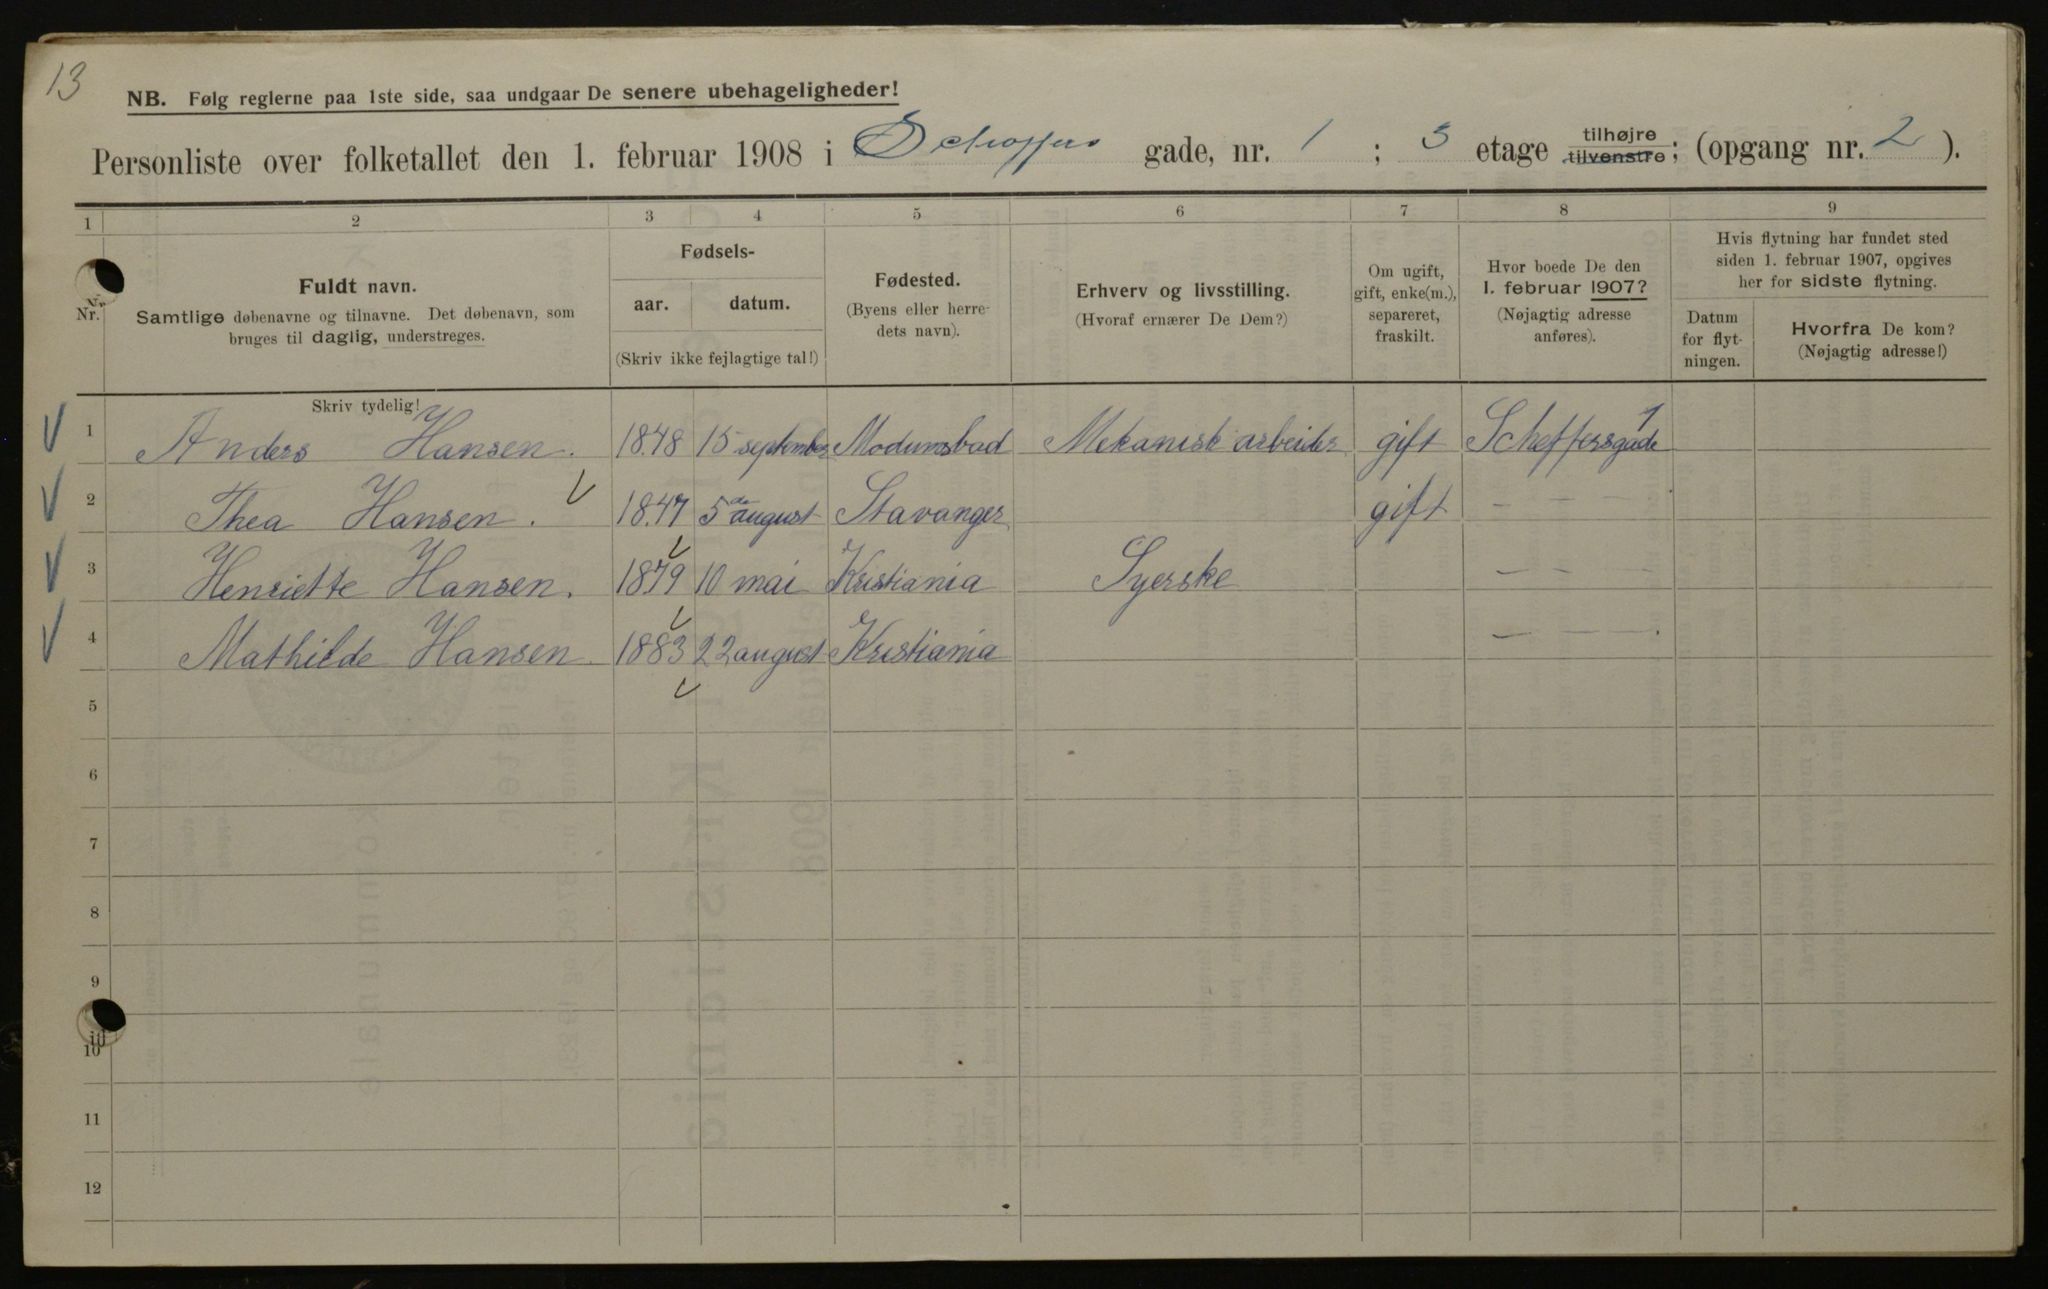 13
NB. Følg reglerne paa 1ste side, saa undgaar De senere ubehageligheder!
Personliste over folketallet den 1. februar 1908 i Scheffers gade, nr. 1 ; 3 etage tilhøjre tilvenstre ; (opgang nr. 2 ).
1 2 3 4 5 6 7 8 9
Nr. Fuldt navn. Samtlige døbenavne og tilnavne. Det døbenavn, som bruges til daglig, understreges.
Fødsels-
aar. datum.
(Skriv ikke fejlagtige tal!)
Fødested. (Byens eller herredets navn).
Erhverv og livsstilling. (Hvoraf ernærer De Dem?)
Om ugift, gift, enke(m.), separeret, fraskilt.
Hvor boede De den 1. februar 1907? (Nøjagtig adresse anføres).
Hvis flytning har fundet sted siden 1. februar 1907, opgives her for sidste flytning.
Datum for flytningen.
Hvorfra De kom? (Nøjagtig adresse!)
Skriv tydelig!
1 Anders Hansen. 1848 15 september Modumsbad Mekanisk arbeider gift Scheffersgade 1
2 Thea Hansen. 1847 5de august Stavanger gift — — —
3 Henriette Hansen. 1879 10 mai Kristiania Syerske — — —
4 Mathilde Hansen. 1883 22 august Kristiania — — —.
5
6
7
8
9
10
11
12